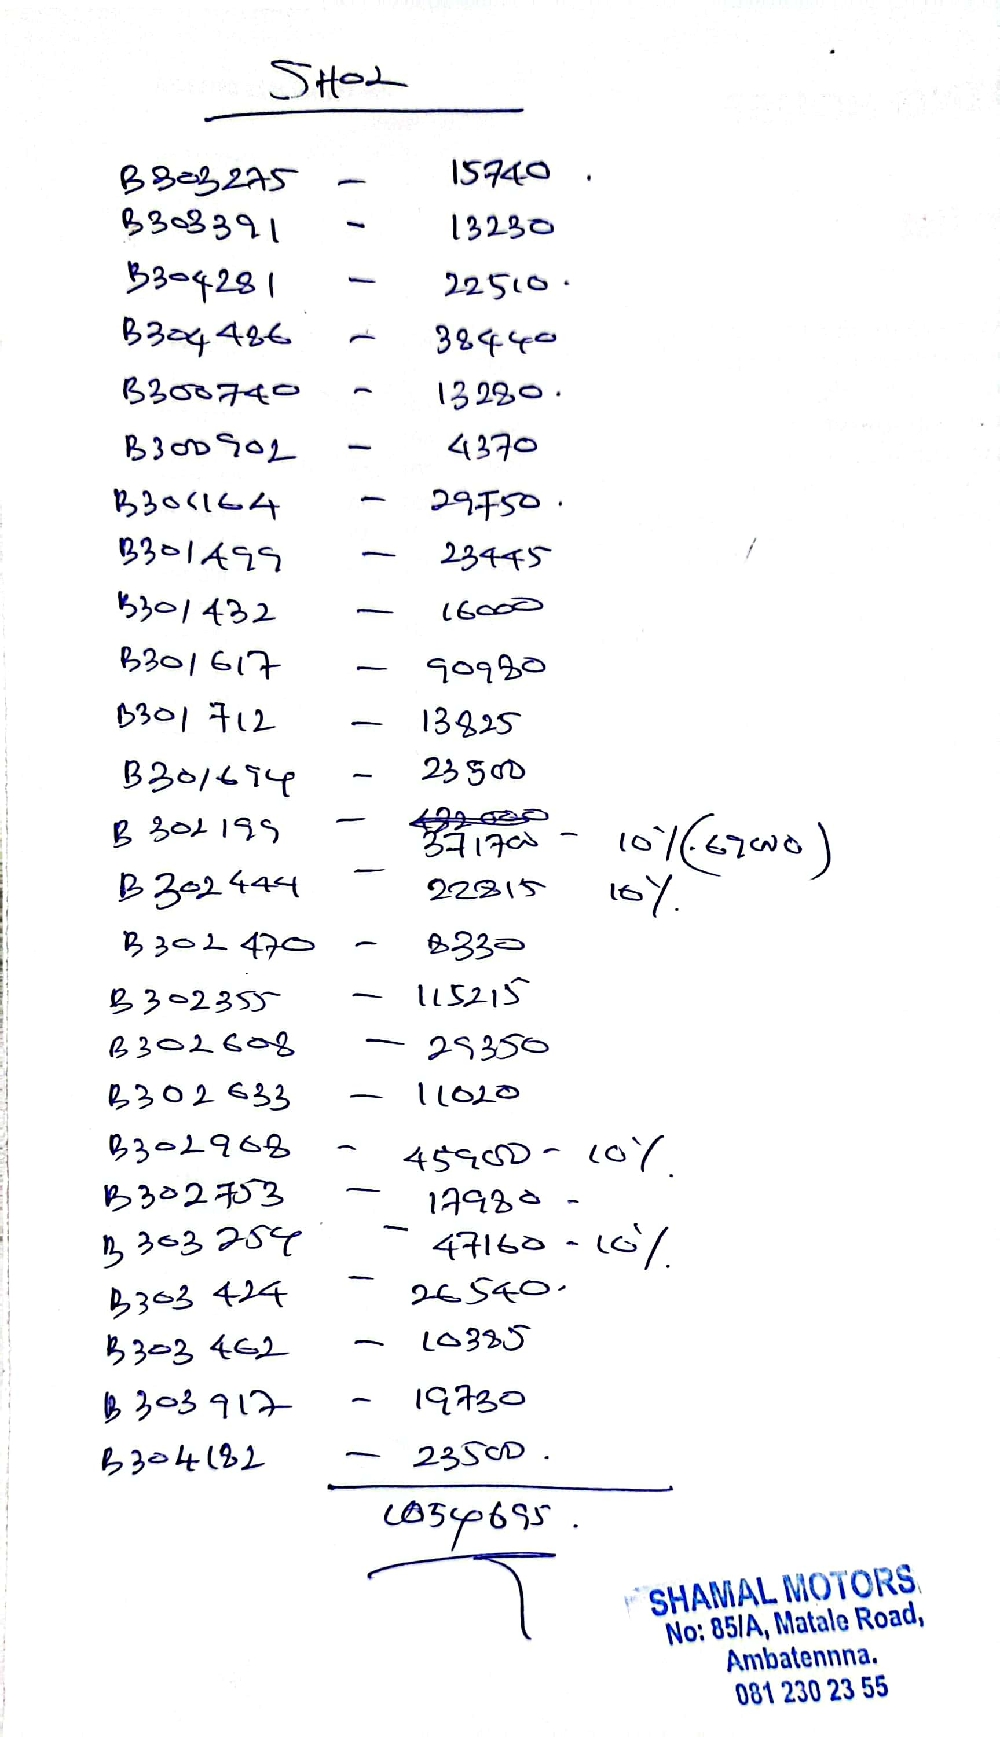 SH02
B303275 - 15740.
B303391 - 13230
B304281 - 22510.
B304486 - 38440
B300740 - 13280.
B300902 - 4370
B301164 - 29750.
B301499 - 23445
B301432 - 16000
B301617 - 90980
B301712 - 13825
B301694 - 23500
B302199 - 371700 - 10%
B302444 - 22815 10%.
B302470 - 8330
B302355 - 115215
B302608 - 29350
B302633 - 11020
B302968 - 45900 - 10%.
B302753 - 17980 -
B303254 - 47160 - 10%.
B303424 - 26540.
B303462 - 10385
B303917 - 19730
B304182 - 23500.
1054695.
SHAMAL MOTORS.
No: 85/A, Matale Road,
Ambatennna.
081 230 23 55